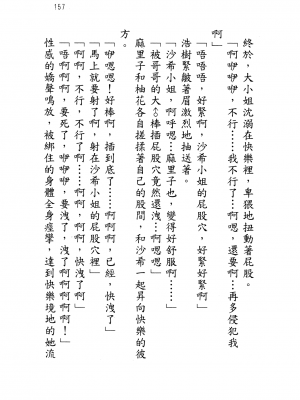 157
終於，大小姐沈溺在快樂裡，卑猥地扭動著屁股。
「啊咿咿咿，不行……我不行了……啊嗯，還要…再多侵犯我
啊」
「唔唔，好緊啊，沙希小姐的屁股穴，好緊好緊啊」
浩樹緊皺著眉激烈地抽送著。
「沙希小姐，啊呼嗯…麻里子也，變得好舒服啊……」
「被哥哥的大 棒插屁股穴竟然還洩…啊嗯嗯」
麻里子和柚花各自搓揉著自己的股間，和沙希一起昇向快樂的彼
方。
「咿嗯嗯！好棒啊，插到底了……啊啊啊，已經，快洩了」
「馬上就要射了啊，射在沙希小姐的屁股穴裡」
「啊，不行，不行了，啊啊，啊啊，快洩了啊」
「唔啊啊啊，要死了，咿咿咿，要洩了，洩了啊啊啊啊！」
性感的嬌聲鳴放，被綁住的身體全身痙攣，達到快樂境地的她流